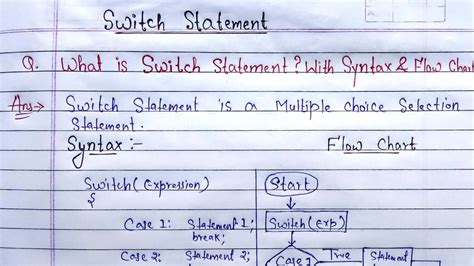 Switch Statement
Q. What is Switch Statement? With Syntax & Flow Chart
Ans:→ Switch Statement is a Multiple choice Selection
Statement.
Syntax :-
Flow Chart
Switch(Expression)
{
Case 1: Statement 1;
break;
Case 2: Statement 2;
Start
Switch(Exp)
Case 1
True
Statement